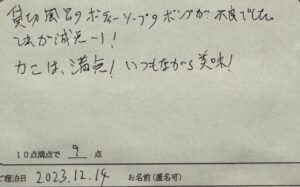 貸切風呂のボディーソープのポンプが不良でした。
それが減点ー1!
カニは、満点! いつもながら美味!
10点満点で 9 点
ご宿泊日 2023.12.14 お名前(匿名可)